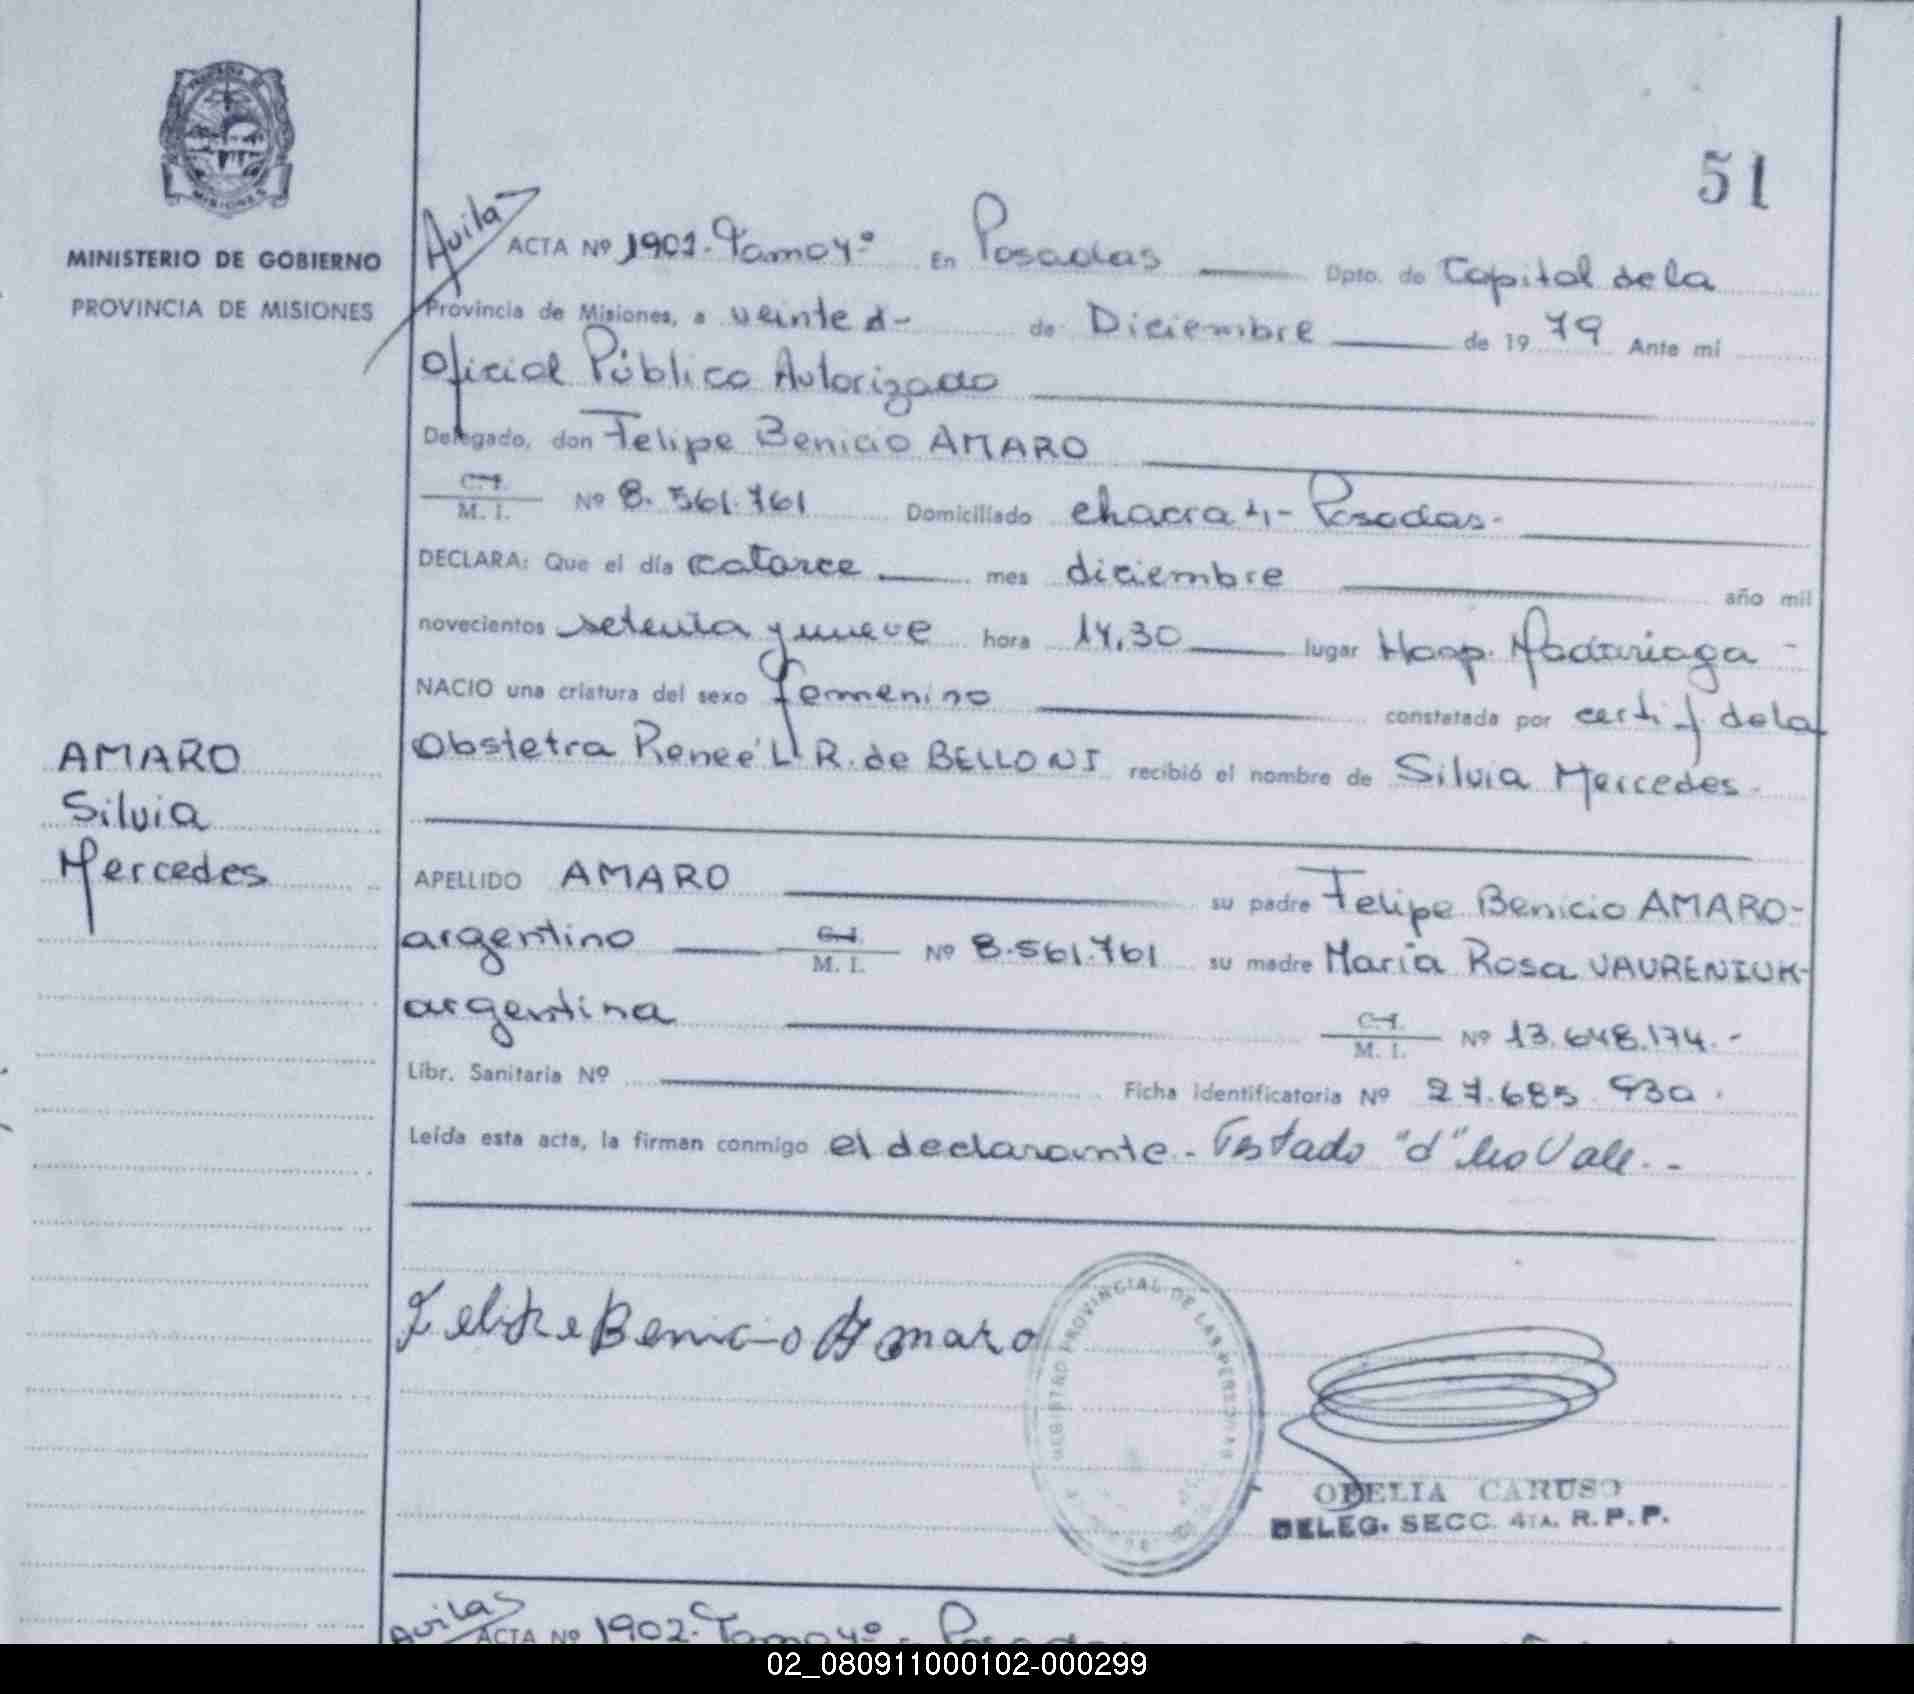 51
MINISTERIO DE GOBIERNO
PROVINCIA DE MISIONES
MISIONES
Avila
ACTA Nº 1901. Tomo 4º En Posadas Dpto. de Capital de la
Provincia de Misiones, a veinte d- de Diciembre de 19 79 Ante mi
Oficial Público Autorizado
Delegado, don Felipe Benicio AMARO
C. I. M. I. Nº 8.561.761 Domiciliado chacra 4- Posadas-
DECLARA: Que el día catorce mes diciembre año mil
novecientos setenta y nueve hora 14,30 lugar Hosp. Madariaga -
NACIO una criatura del sexo femenino constatada por certif. de la
Obstetra Reneé L. R. de BELLONI recibió el nombre de Silvia Mercedes-
AMARO
Silvia
Mercedes
APELLIDO AMARO su padre Felipe Benicio AMARO-
argentino C. I. M. I. Nº 8.561.761 su madre Maria Rosa VAURENIUK-
argentina C. I. M. I. Nº 13.648.174.-
Libr. Sanitaria Nº Ficha identificatoria Nº 27.685.930.
Leída esta acta, la firman conmigo el declarante. Testado "d" No Vale.-
Felipe Benicio Amaro
REGISTRO PROVINCIAL DE LAS PERSONAS
OFELIA CARUSO
DELEG. SECC. 4TA. R.P.P.
Avilas
ACTA Nº 1902. Tomo 4º
02_080911000102-000299